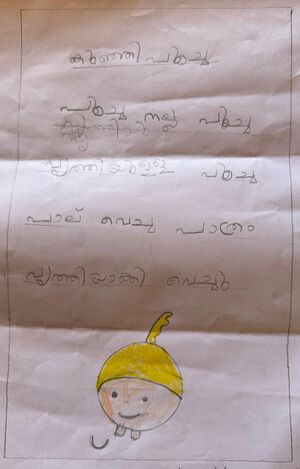 കുഞ്ഞി പൂച്ച
പൂച്ച നല്ല പൂച്ച
വൃത്തിയുള്ള പൂച്ച
പാല് വെച്ച പാത്രം
വൃത്തിയാക്കി വെച്ചു